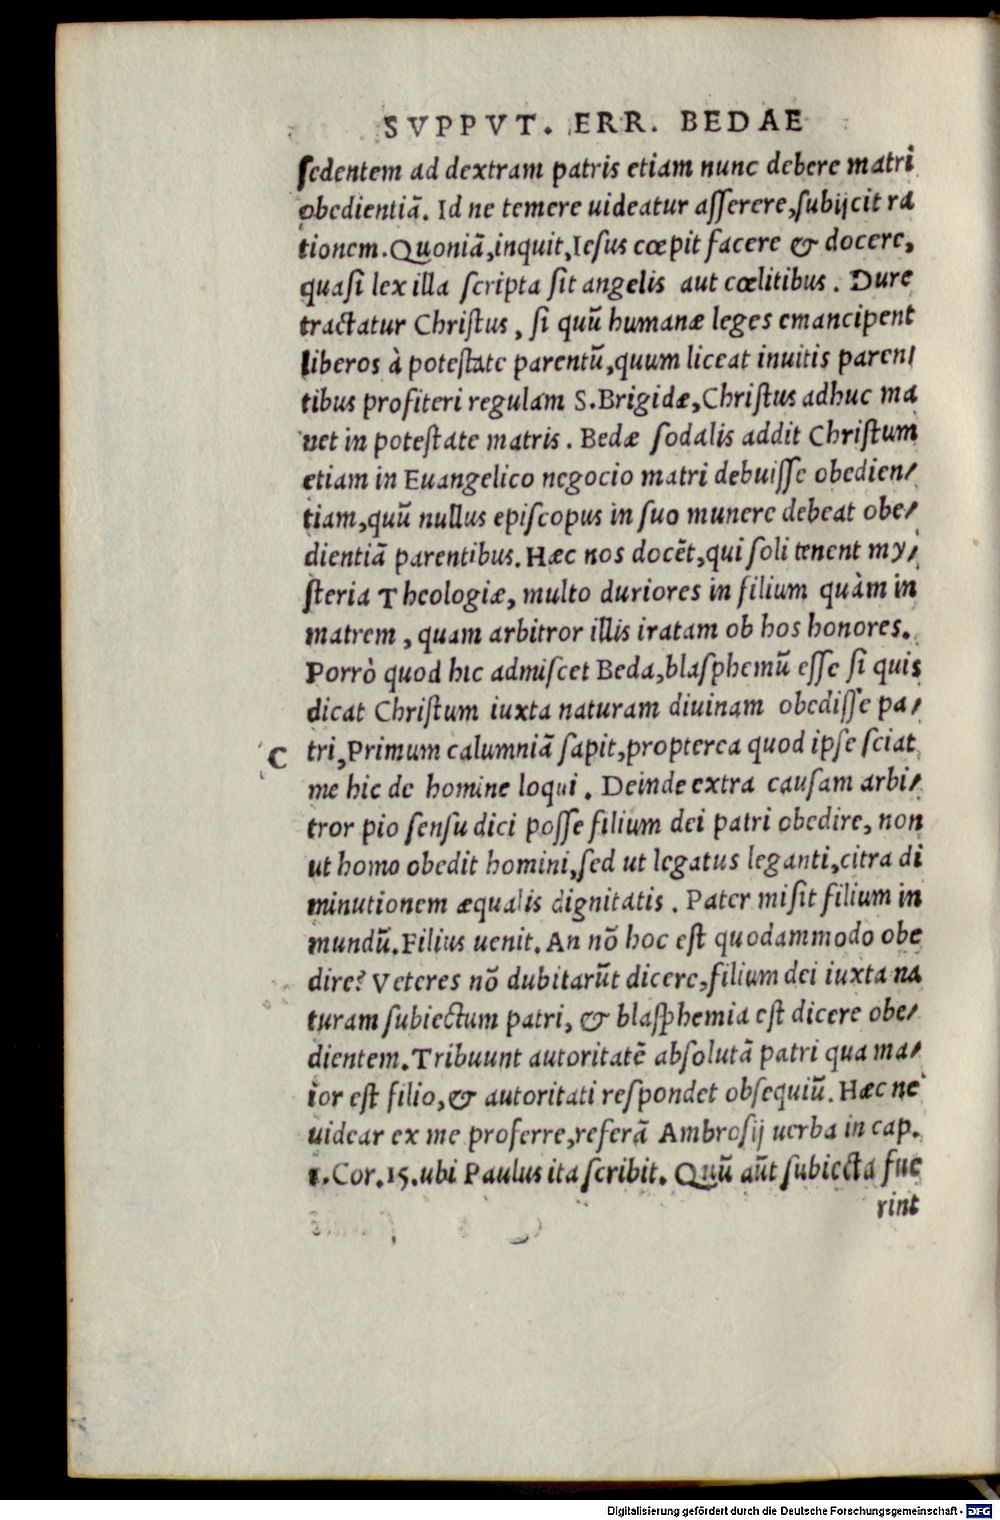 SVPPVT. ERR. BEDAE
sedentem ad dextram patris etiam nunc debere matri
obedientiã. Id ne temere uideatur asserere, subijcit ra
tionem. Quoniã, inquit, Iesus cœpit facere & docere,
quasi lex illa scripta sit angelis aut cœlitibus. Dure
tractatur Christus, si quũ humanæ leges emancipent
liberos à potestate parentũ, quum liceat inuitis paren/
tibus profiteri regulam S. Brigidæ, Christus adhuc ma
net in potestate matris. Bedæ sodalis addit Christum
etiam in Euangelico negocio matri debuisse obedien/
tiam, quũ nullus episcopus in suo munere debeat obe/
dientiã parentibus. Hæc nos docẽt, qui soli tenent my/
steria Theologiæ, multo duriores in filium quàm in
matrem, quam arbitror illis iratam ob hos honores.
Porrò quod hic admiscet Beda, blasphemũ esse si quis
dicat Christum iuxta naturam diuinam obedisse pa/
C tri, Primum calumniã sapit, propterea quod ipse sciat
me hic de homine loqui. Deinde extra causam arbi/
tror pio sensu dici posse filium dei patri obedire, non
ut homo obedit homini, sed ut legatus leganti, citra di
minutionem æqualis dignitatis. Pater misit filium in
mundũ. Filius uenit. An nõ hoc est quodammodo obe
dire? Veteres nõ dubitarũt dicere, filium dei iuxta na
turam subiectum patri, & blasphemia est dicere obe/
dientem. Tribuunt autoritatẽ absolutã patri qua ma/
ior est filio, & autoritati respondet obsequiũ. Hæc ne
uidear ex me proferre, referã Ambrosij uerba in cap.
1. Cor. 15. ubi Paulus ita scribit. Quũ aũt subiecta fue
rint
Digitalisierung gefördert durch die Deutsche Forschungsgemeinschaft - DFG